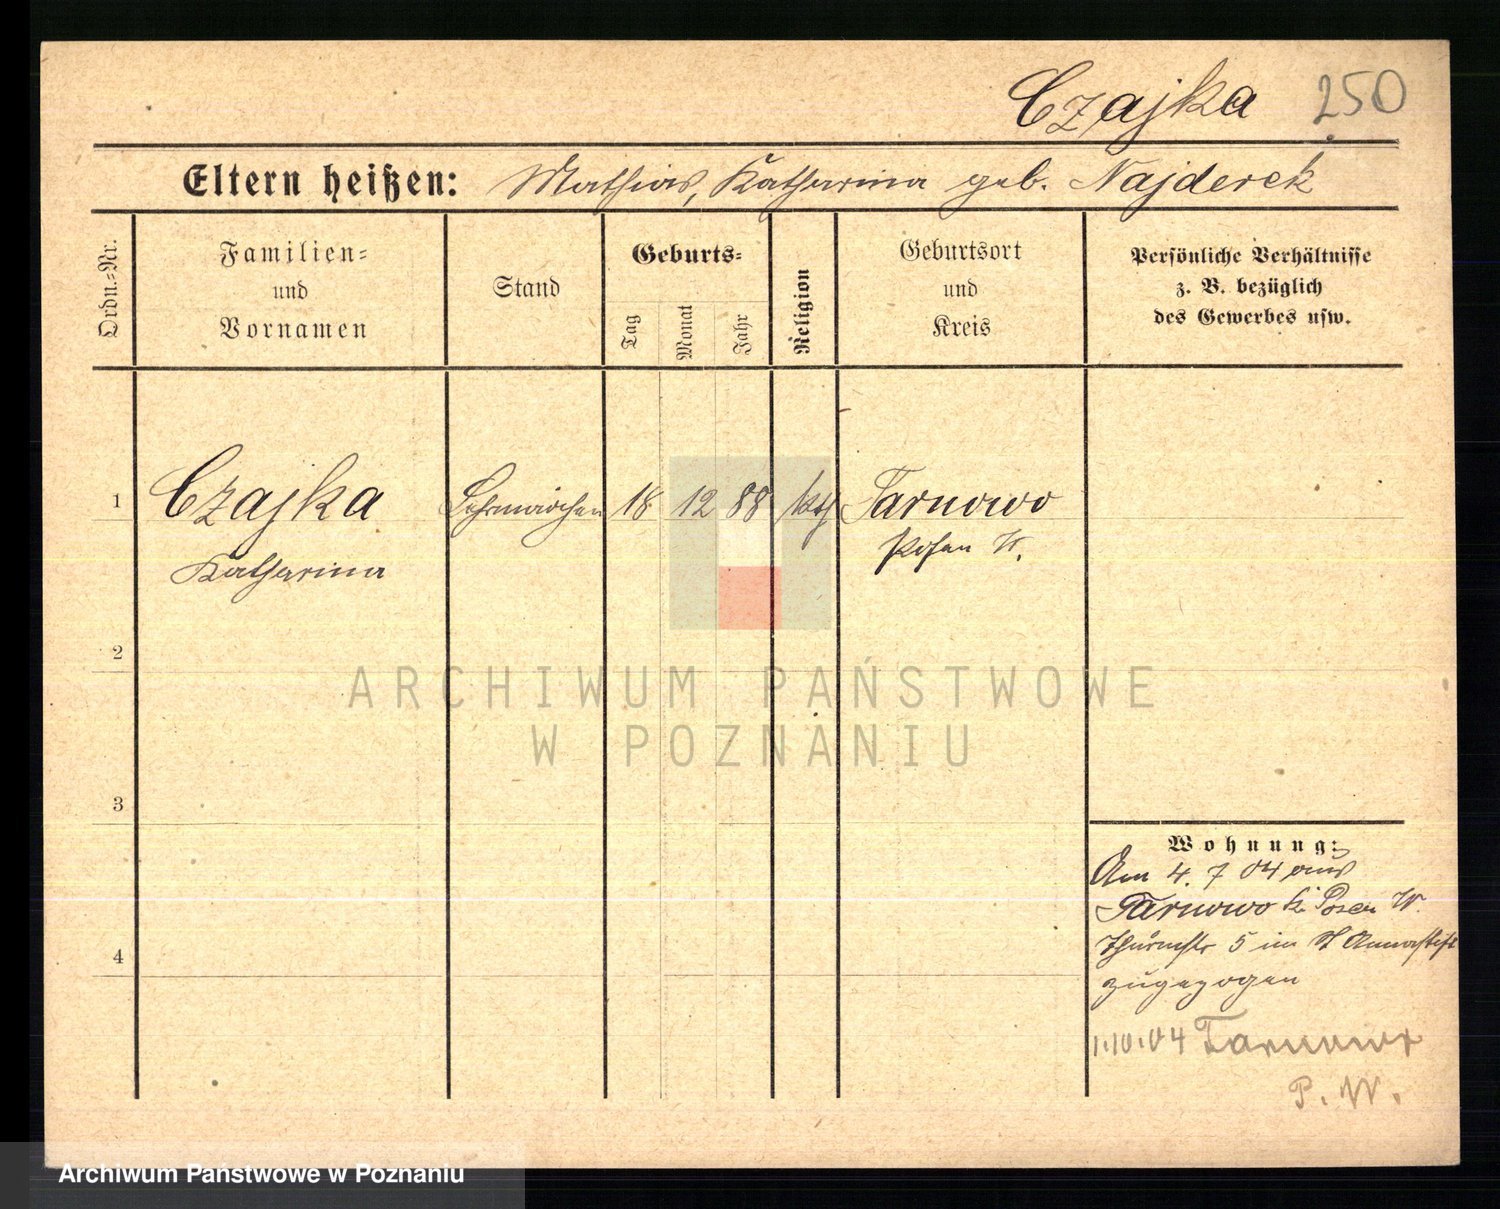 Czajka 250
Eltern heißen: Mathias, Katharina geb. Najderek
Ordn.-Nr.
Familien-
und
Vornamen
Stand
Geburts-
Tag
Monat
Jahr
Religion
Geburtsort
und
Kreis
Persönliche Verhältnisse
z. B. bezüglich
des Gewerbes usw.
1 Czajka Lehrmädchen 18 12 88 kth Tarnowo
Katharina Posen W.
2
3
4
Wohnung:
Am 4. 7 04 aus
Tarnowo Kr Posen W.
5 im St Annastift
zugezogen
1.10.04 Tarnowo
P. W.
ARCHIWUM PAŃSTWOWE
W POZNANIU
Archiwum Państwowe w Poznaniu